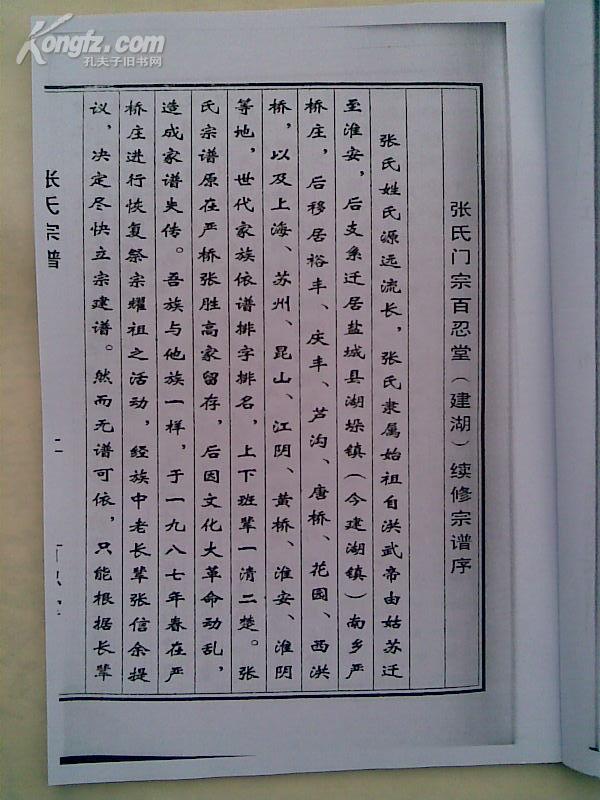 Kongfz.com
孔夫子旧书网
张氏门宗百忍堂（建湖）续修宗谱序
张氏姓氏源远流长，张氏隶属始祖自洪武帝由姑苏迁
至淮安，后支系迁居盐城县湖垛镇（今建湖镇）南乡严
桥庄，后移居裕丰、庆丰、芦沟、唐桥、花园、西洪
桥，以及上海、苏州、昆山、江阴、黄桥、淮安、淮阴
等地，世代家族依谱排字排名，上下班辈一清二楚。张
氏宗谱原在严桥张胜高家留存，后因文化大革命动乱，
造成家谱失传。吾族与他族一样，于一九八七年春在严
桥庄进行恢复祭宗耀祖之活动，经族中老长辈张信余提
议，决定尽快立宗建谱。然而无谱可依，只能根据长辈
张氏宗谱